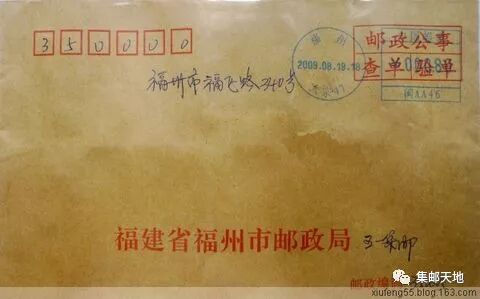 350000
邮政公事
查单验单
2009.08.19.18
福州
闽AA46
福州市福飞路240号
福建省福州市邮政局
邮政编
集邮天地
xiufeng55.blog.163.com